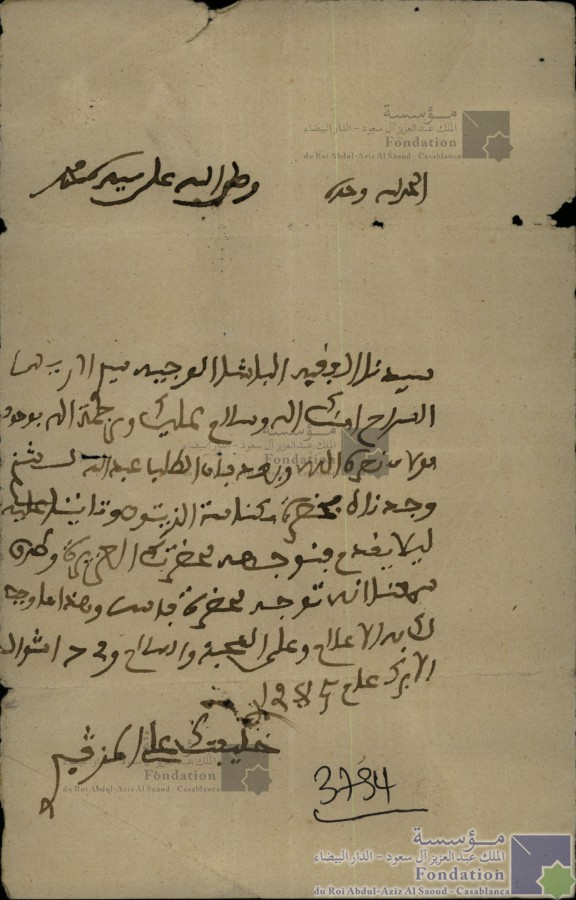 مؤسسة
الملك عبدالعزيز آل سعود - الدار البيضاء
Fondation
du Roi Abdul-Aziz Al Saoud - Casablanca
الحمد لله وحده وصلى الله على سيدنا محمد
سيدنا الفقيه الباشا الوجيه سيدي
السراج امنك الله وسلام عليك ورحمة الله بوجود
مولانا نصره الله وبعد فان الطالب عبد الله
وجدناه بحضرة مكناسة الزيتون وقبضنا عليه
ليلا يقدم بتوجهه بحضرتك العزيزة
سمعنا انه توجه لحضرة فاس وهذا ما وجب
به الاعلام وعلى المحبة والسلام وفي شوال
الابرك عام 1285
خليفتك علي
3794
مؤسسة
الملك عبدالعزيز آل سعود - الدار البيضاء
Fondation
du Roi Abdul-Aziz Al Saoud - Casablanca